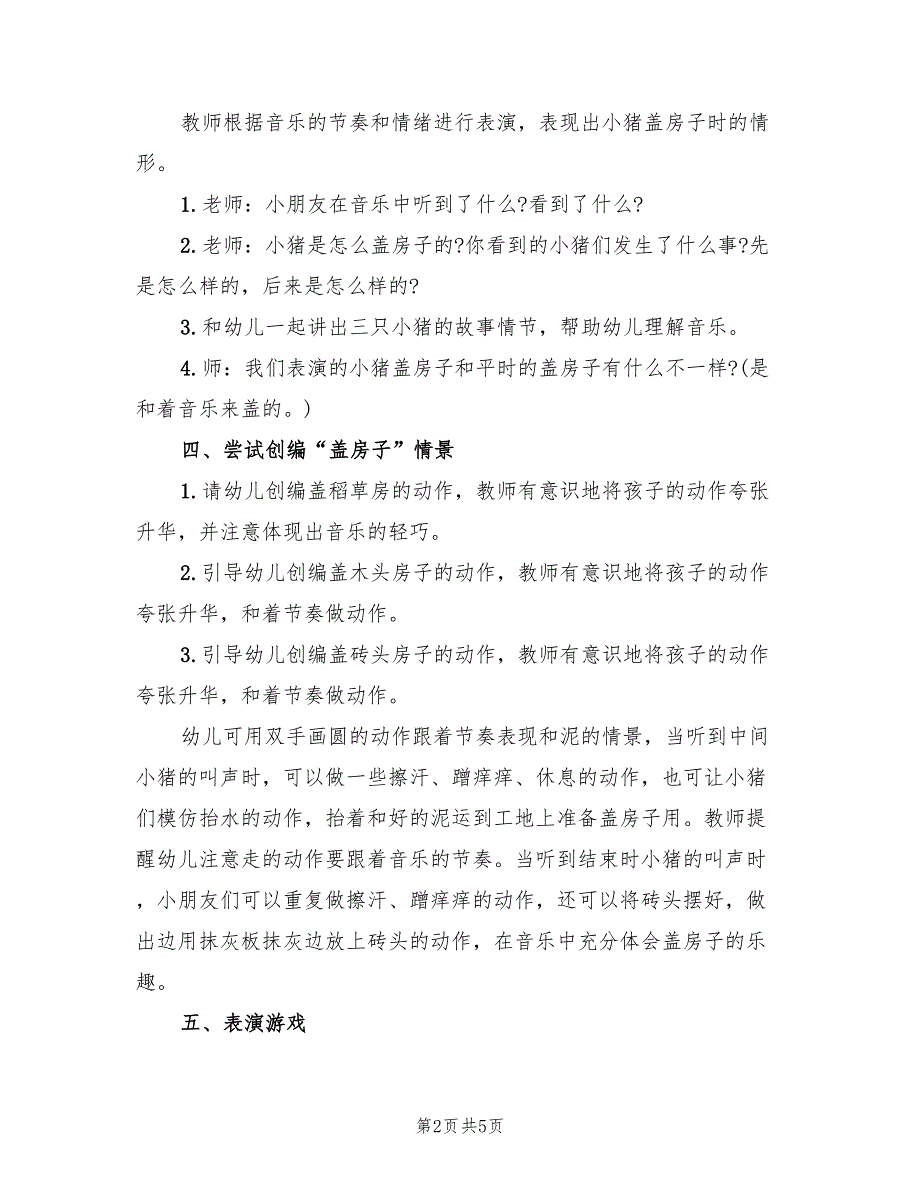 教师根据音乐的节奏和情绪进行表演，表现出小猪盖房子时的情
形。
1.老师：小朋友在音乐中听到了什么?看到了什么?
2.老师：小猪是怎么盖房子的?你看到的小猪们发生了什么事?先
是怎么样的，后来是怎么样的?
3.和幼儿一起讲出三只小猪的故事情节，帮助幼儿理解音乐。
4.师：我们表演的小猪盖房子和平时的盖房子有什么不一样?(是
和着音乐来盖的。)
四、尝试创编“盖房子”情景
1.请幼儿创编盖稻草房的动作，教师有意识地将孩子的动作夸张
升华，并注意体现出音乐的轻巧。
2.引导幼儿创编盖木头房子的动作，教师有意识地将孩子的动作
夸张升华，和着节奏做动作。
3.引导幼儿创编盖砖头房子的动作，教师有意识地将孩子的动作
夸张升华，和着节奏做动作。
幼儿可用双手画圆的动作跟着节奏表现和泥的情景，当听到中间
小猪的叫声时，可以做一些擦汗、蹭痒痒、休息的动作，也可让小猪
们模仿抬水的动作，抬着和好的泥运到工地上准备盖房子用。教师提
醒幼儿注意走的动作要跟着音乐的节奏。当听到结束时小猪的叫声时
，小朋友们可以重复做擦汗、蹭痒痒的动作，还可以将砖头摆好，做
出边用抹灰板抹灰边放上砖头的动作，在音乐中充分体会盖房子的乐
趣。
五、表演游戏
第2页 共5页